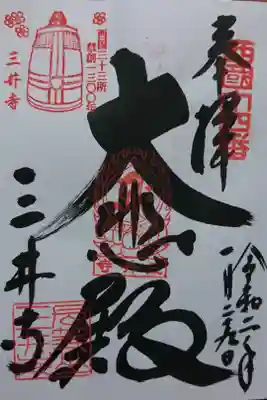 奉拝
西国十四番
令和二年
一月二五日
大悲殿
三井寺
西国三十三所
草創一三〇〇年
三井寺